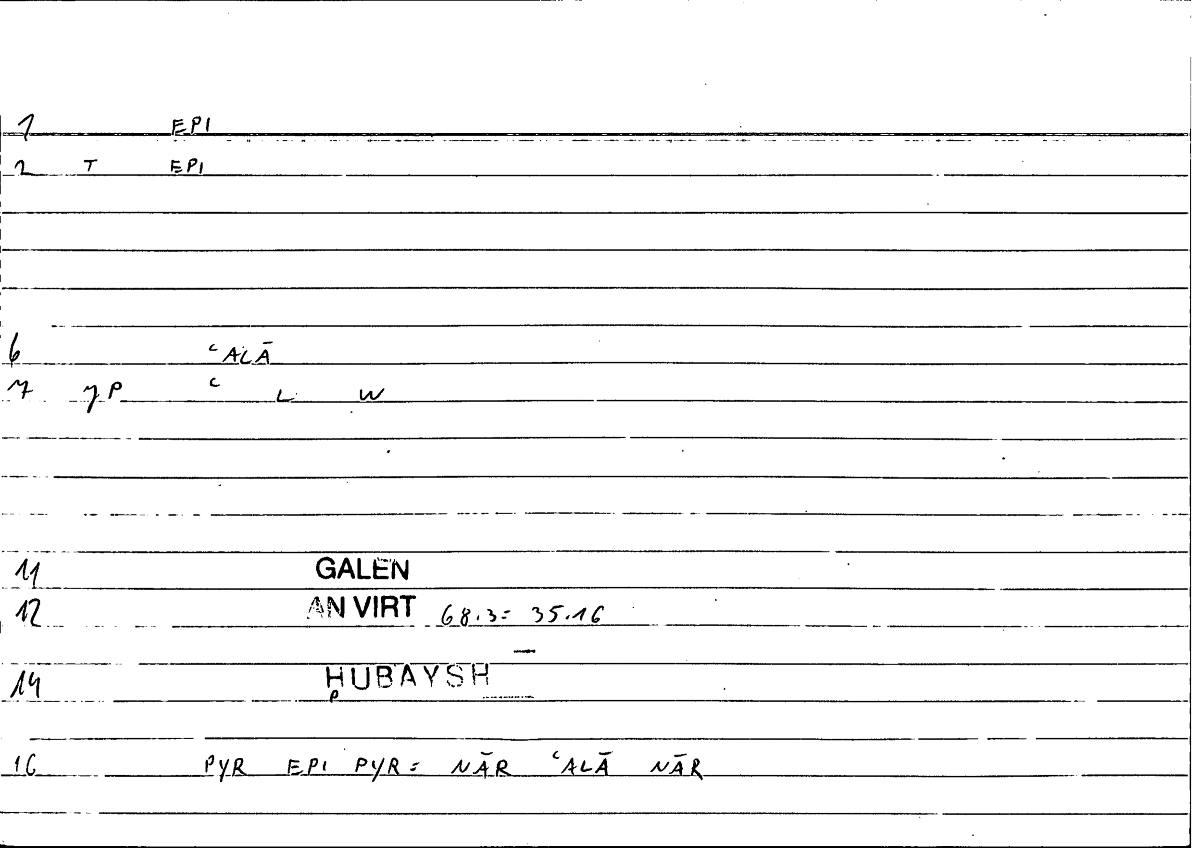 1 EPI
2 T EPI
6 ʿALĀ
7 7P ʿ L W
11 GALEN
12 AN VIRT 68.3= 35.16
14 ḤUBAYSH
16 PYR EPI PYR= NĀR ʿALĀ NĀR